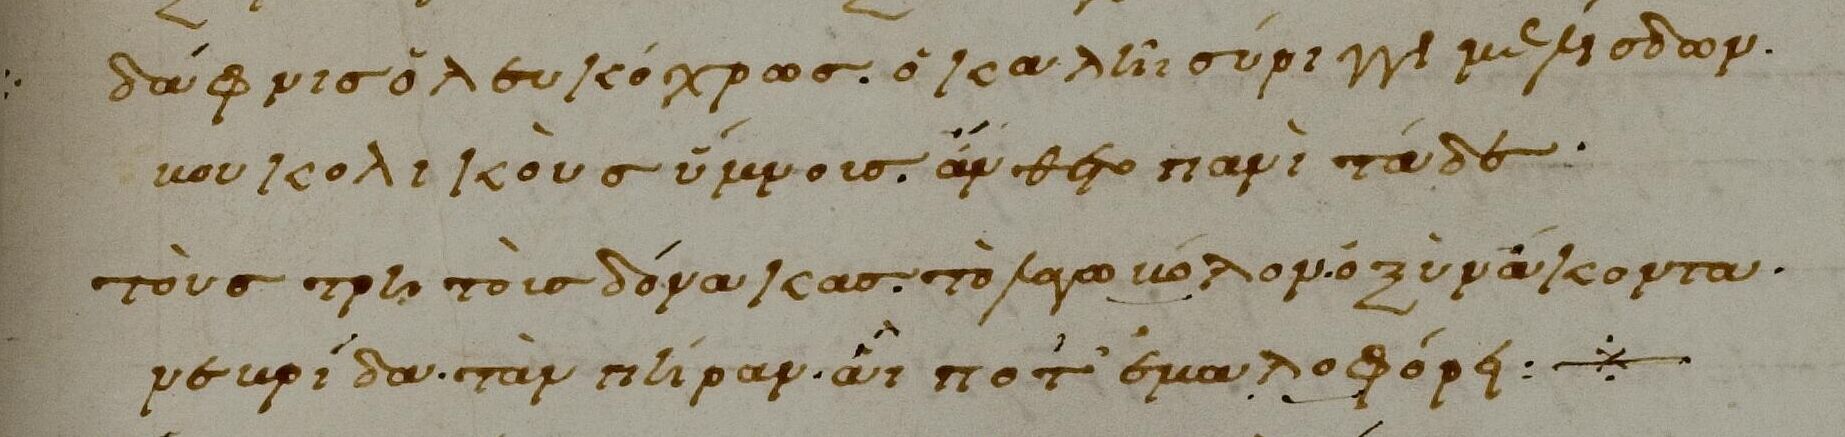 δάφνισ ὁ λευκόχρωσ. ὁ καλῆι σύριγγι μελίσδων.
βουκολικοὺσ ὕμνοισ. ἄνθετο πανὶ τάδε.
τοὺσ τρητοὺσ δόνακασ. τὸ λαγωβόλον. ὀξὺν ἄκοντα.
νεβρίδα. τὰν πήραν. ἇι ποτ' ἐμαλοφόρει: